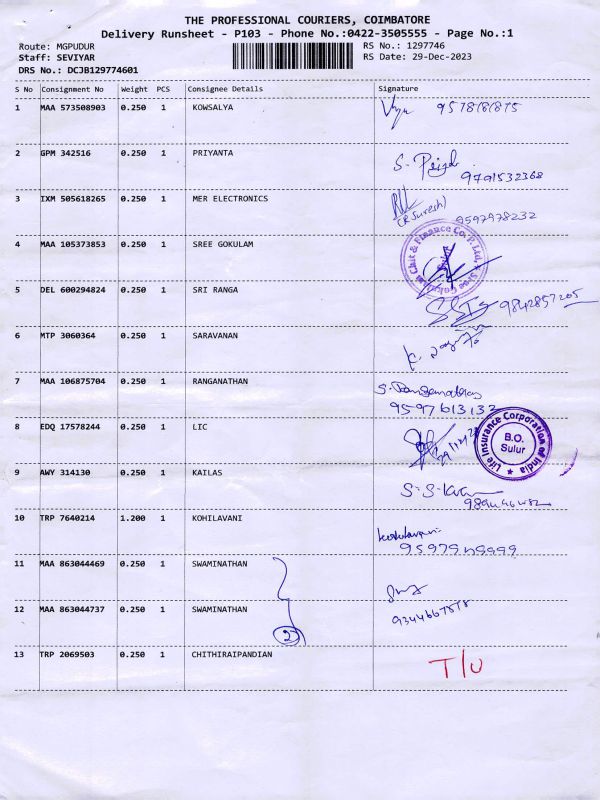 THE PROFESSIONAL COURIERS, COIMBATORE
Delivery Runsheet - P103 - Phone No.:0422-3505555 - Page No.:1
Route: MGPUDUR RS No.: 1297746
Staff: SEVIYAR RS Date: 29-Dec-2023
DRS No.: DCJB129774601
S No Consignment No Weight PCS Consignee Details Signature
1 MAA 573508903 0.250 1 KOWSALYA
2 GPM 342516 0.250 1 PRIYANTA S.
9791532368
3 IXM 505618265 0.250 1 MER ELECTRONICS
(R.Suresh) 9597978232
4 MAA 105373853 0.250 1 SREE GOKULAM
Sree Gokulam Chit & Finance Co. P. Ltd.
5 DEL 600294824 0.250 1 SRI RANGA 9842857205
6 MTP 3060364 0.250 1 SARAVANAN K.
7 MAA 106875704 0.250 1 RANGANATHAN S. Ranganathan
9597613132
8 EDQ 17578244 0.250 1 LIC
Life Insurance Corporation of India
B.O.
Sulur
9 AWY 314130 0.250 1 KAILAS S.S.
10 TRP 7640214 1.200 1 KOHILAVANI
11 MAA 863044469 0.250 1 SWAMINATHAN
12 MAA 863044737 0.250 1 SWAMINATHAN
2
13 TRP 2069503 0.250 1 CHITHIRAIPANDIAN T/U